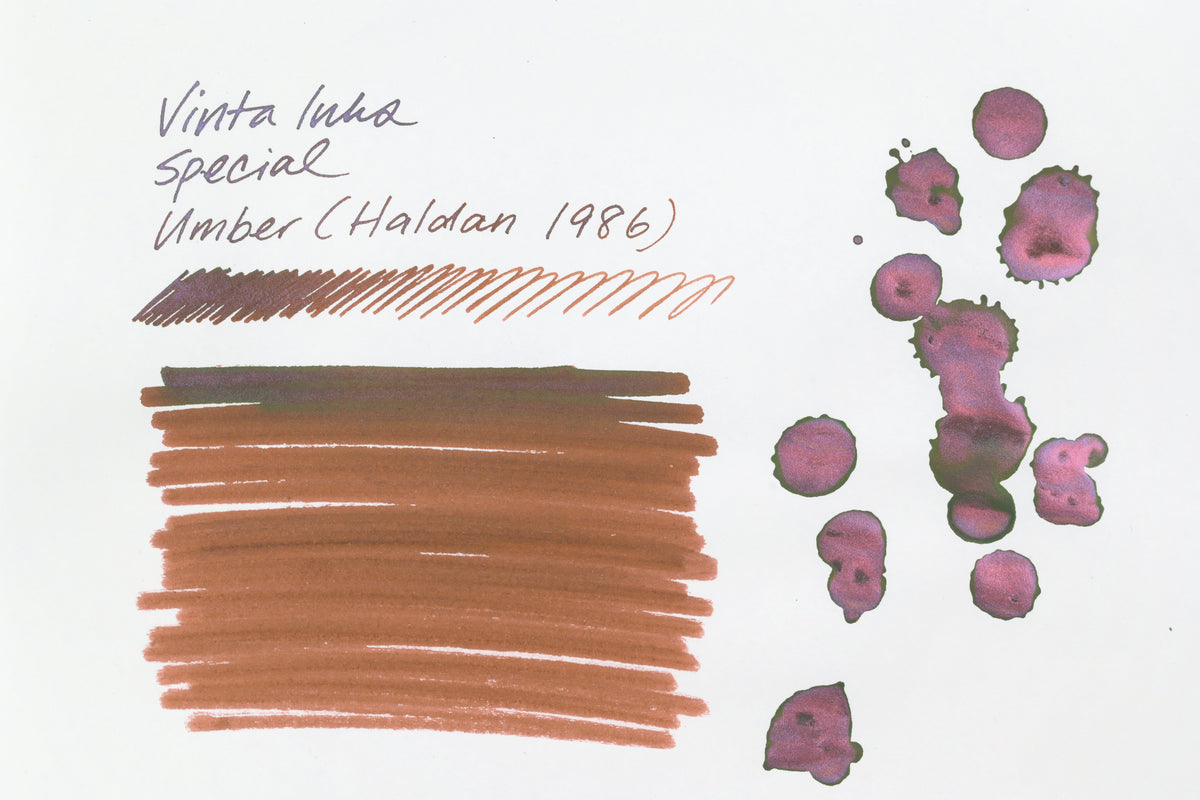 Vinta Inks
Special
Umber (Haldan 1986)